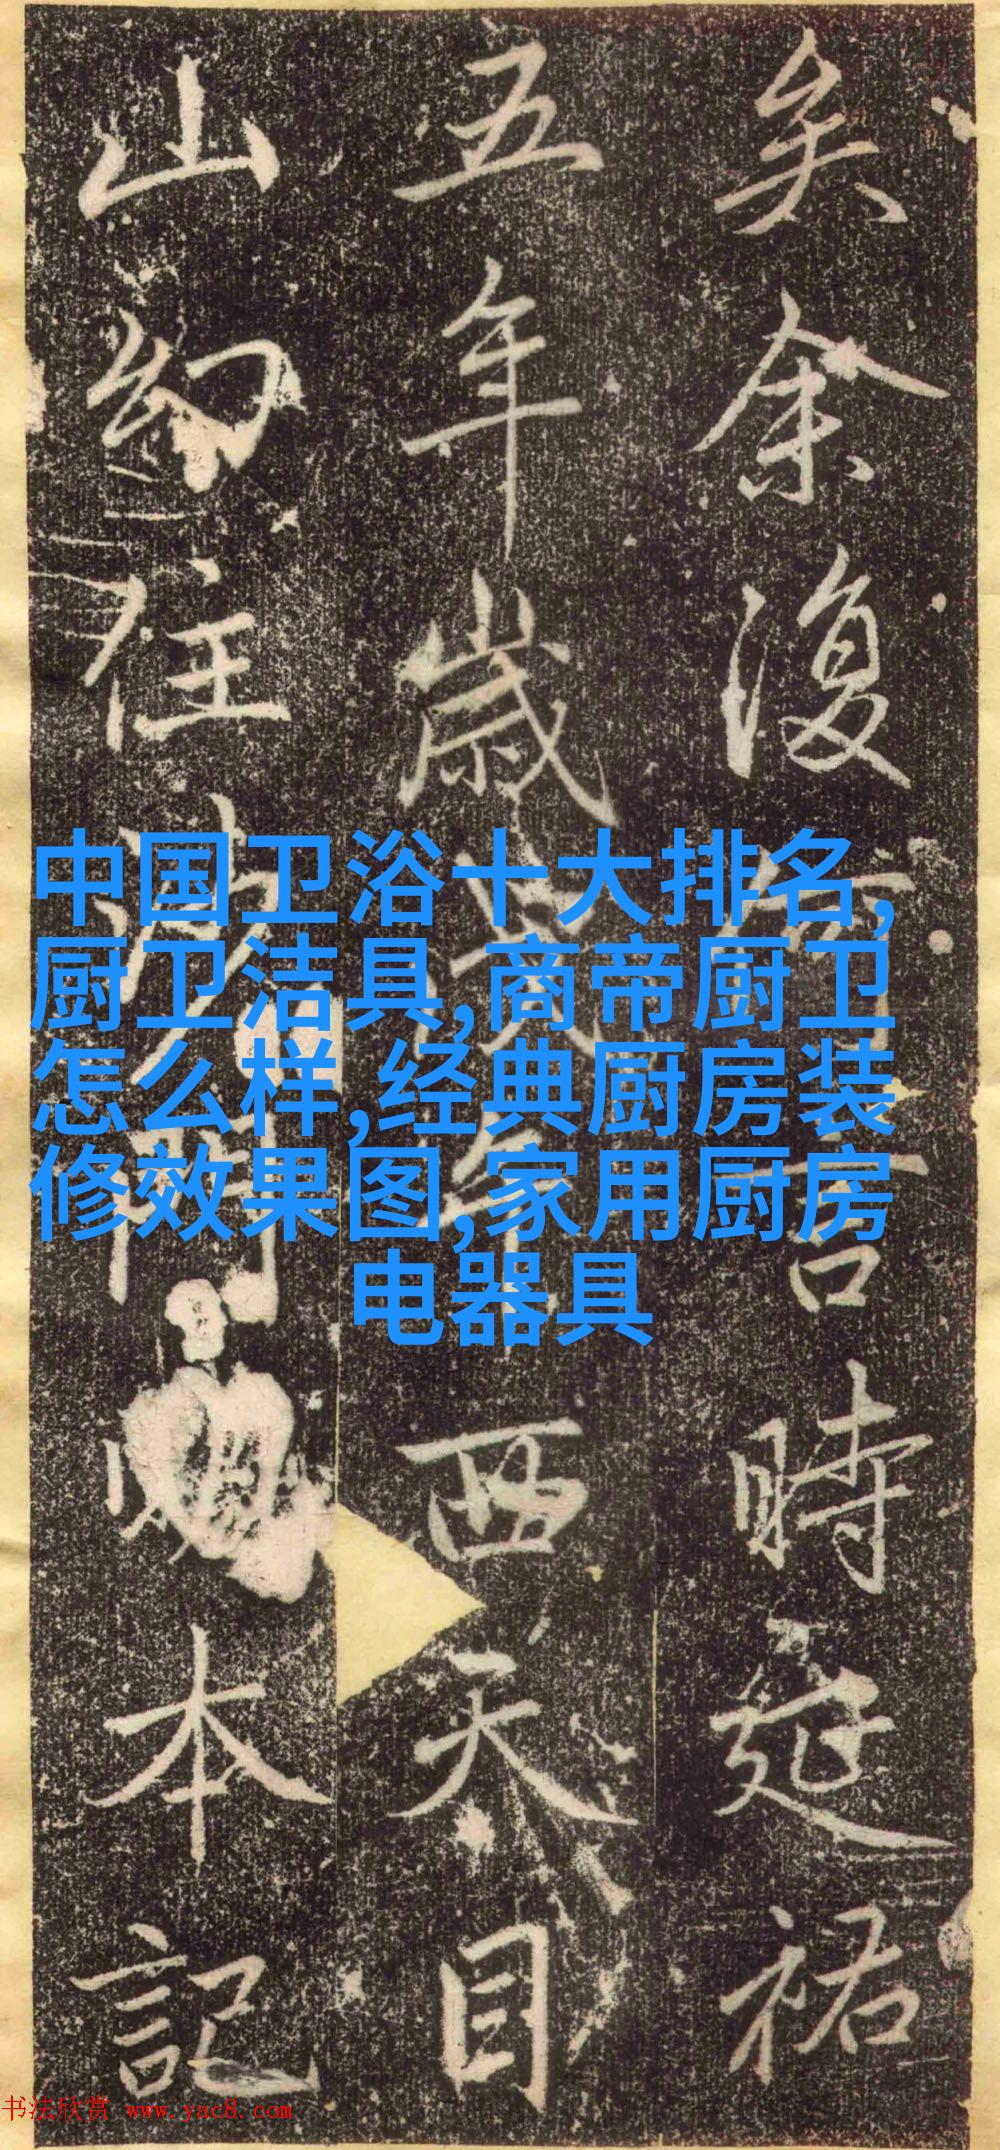 矣余復何言時延祐
五年歲戊午西天目
山幻住沙門本記
中国卫浴十大排名,
厨卫洁具,商帝厨卫
怎么样,经典厨房装
修效果图,家用厨房
电器具
书法欣赏 www.yac8.com